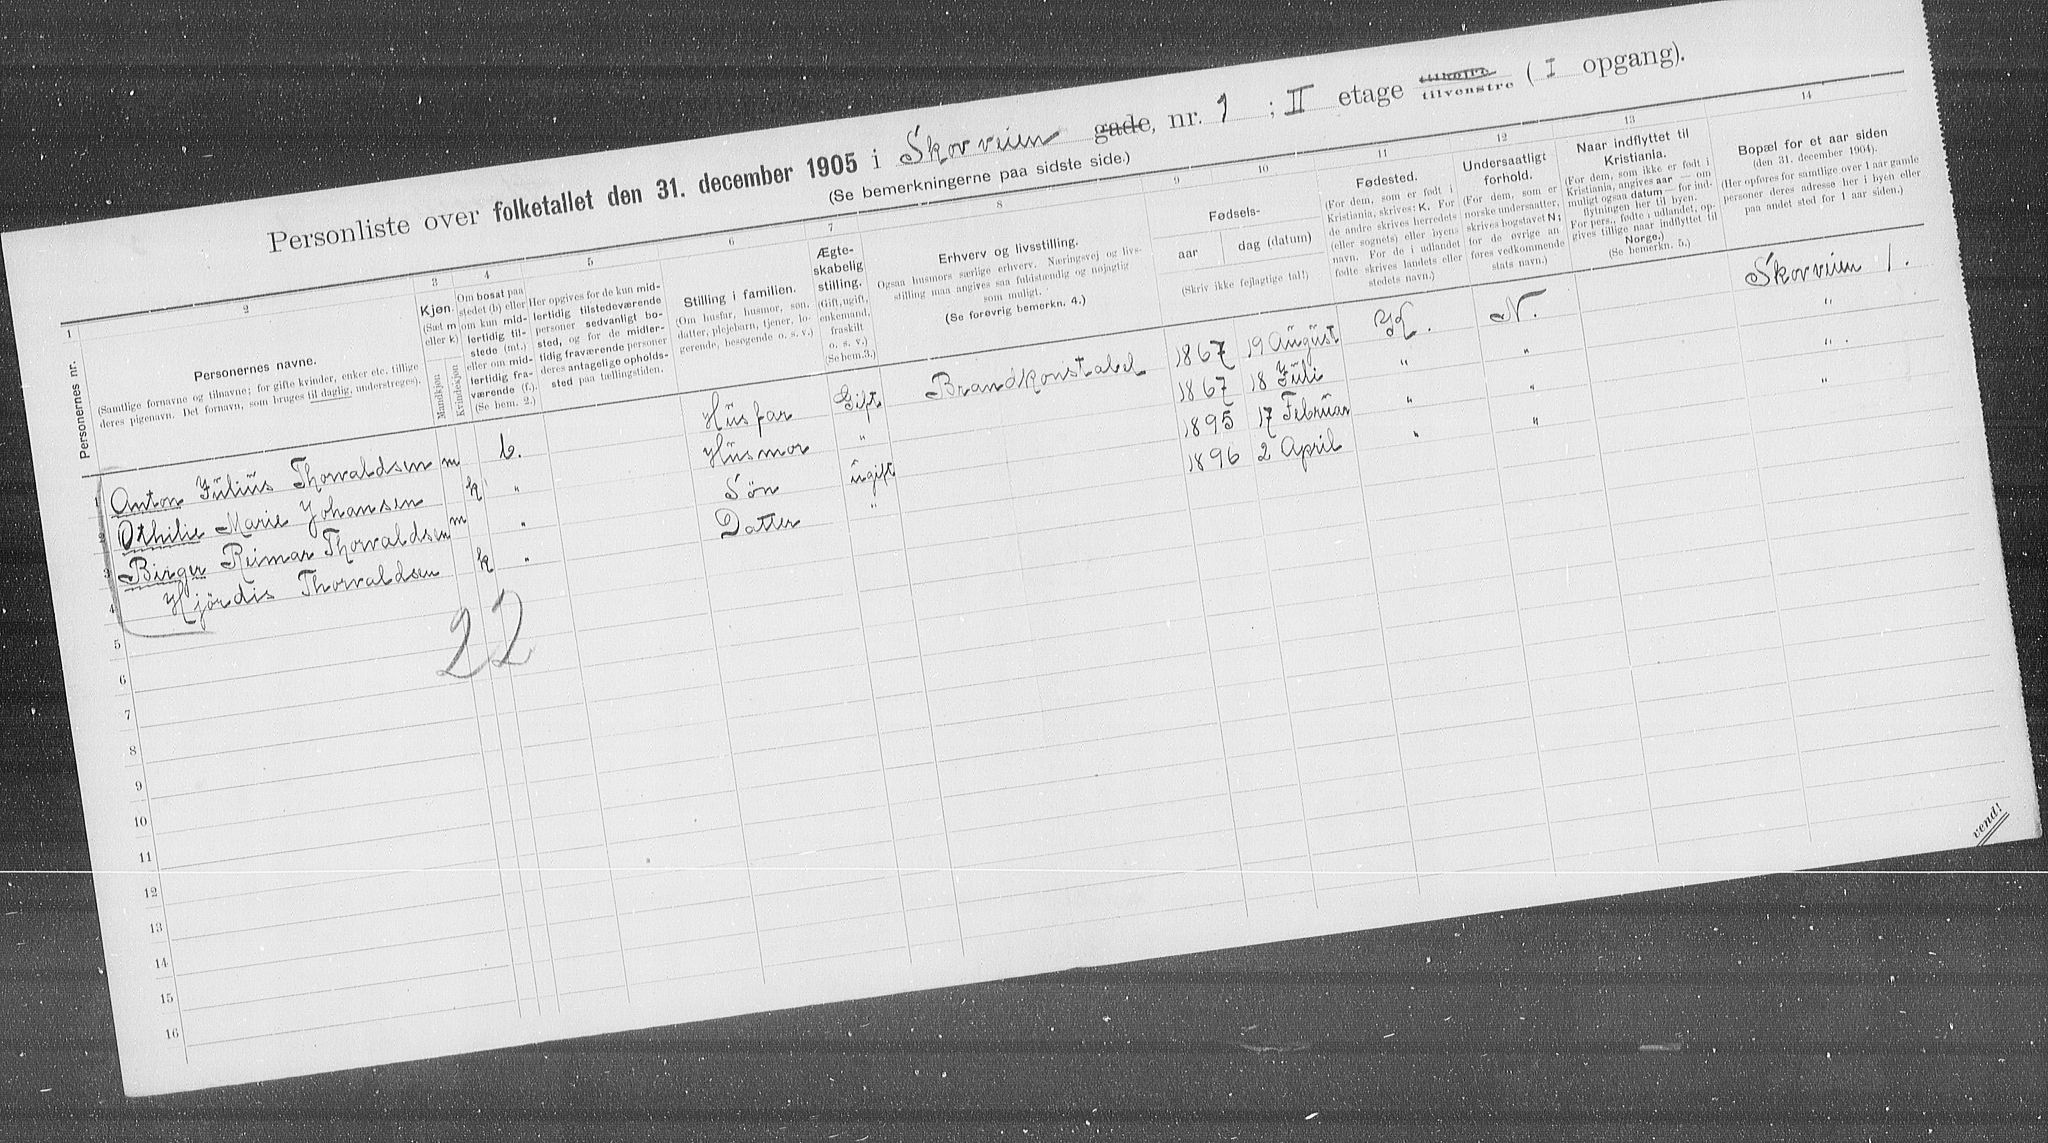 Personliste over folketallet den 31. december 1905 i Skovveien gade, nr. 1 ; II etage tilhøire tilvenstre ( I opgang).
(Se bemerkningerne paa sidste side.)
1 2 3 4 5 6 7 8 9 10 11 12 13 14
Personernes nr.
Personernes navne.
(Samtlige fornavne og tilnavne; for gifte kvinder, enker etc. tillige
deres pigenavn. Det fornavn, som bruges til daglig, understreges).
Kjøn.
(Sæt m
eller k)
Mandkjøn
Kvindekjøn
Om bosat paa
stedet (b) eller
om kun mid-
lertidig til-
stede (mt.)
eller om mid-
lertidig fra-
værende (f.).
(Se bem. 2.)
Her opgives for de kun mid-
lertidig tilstedeværende
personer sedvanligt bo-
sted, og for de midler-
tidig fraværende personer
deres antagelige opholds-
sted paa tællingstiden.
Stilling i familien.
(Om husfar, husmor, søn,
datter, plejebarn, tjener, lo-
gerende, besøgende o. s. v.)
Ægte-
skabelig
stilling.
(Gift, ugift,
enkemand,
fraskilt
o. s. v.)
(Se bem. 3.)
Erhverv og livsstilling.
Ogsaa husmors særlige erhverv. Næringsvej og livs-
stilling maa angives saa fuldstændig og nøjagtig
som muligt.
(Se forøvrig bemerkn. 4.)
Fødsels-
aar dag (datum)
(Skriv ikke fejlagtige tal!)
Fødested.
(For dem, som er født i
Kristiania, skrives: K. For
de andre skrives herredets
(eller sognets) eller byens
navn. For de i udlandet
fødte skrives landets eller
stedets navn.)
Undersaatligt
forhold.
(For dem, som er
norske undersaatter,
skrives bogstavet N;
for de øvrige an-
føres vedkommende
stats navn.)
Naar indflyttet til
Kristiania.
(For dem, som ikke er født i
Kristiania, angives aar — om
muligt ogsaa datum — for ind-
flytningen her til byen.
For pers., fødte i udlandet, op-
gives tillige naar indflyttet til
Norge.)
(Se bemerkn. 5.)
Bopæl for et aar siden
(den 31. december 1904).
(Her opføres for samtlige over 1 aar gamle
personer deres adresse her i byen eller
paa andet sted for 1 aar siden.)
1 Anton Julius Thorvaldsen m b. Husfar Gift Brandkonstabel 1867 19 August K. N. Skovveien 1.
2 Othilie Marie Johansen k " Husmor " 1867 18 Juli " " "
3 Birger Reimar Thorvaldsen m " Søn ugift 1895 17 Februar " " ".
4 Hjördis Thorvaldsen k " Datter " 1896 2 April " " "
22
5
6
7
8
9
10
11
12
13
14
15
16
vend!